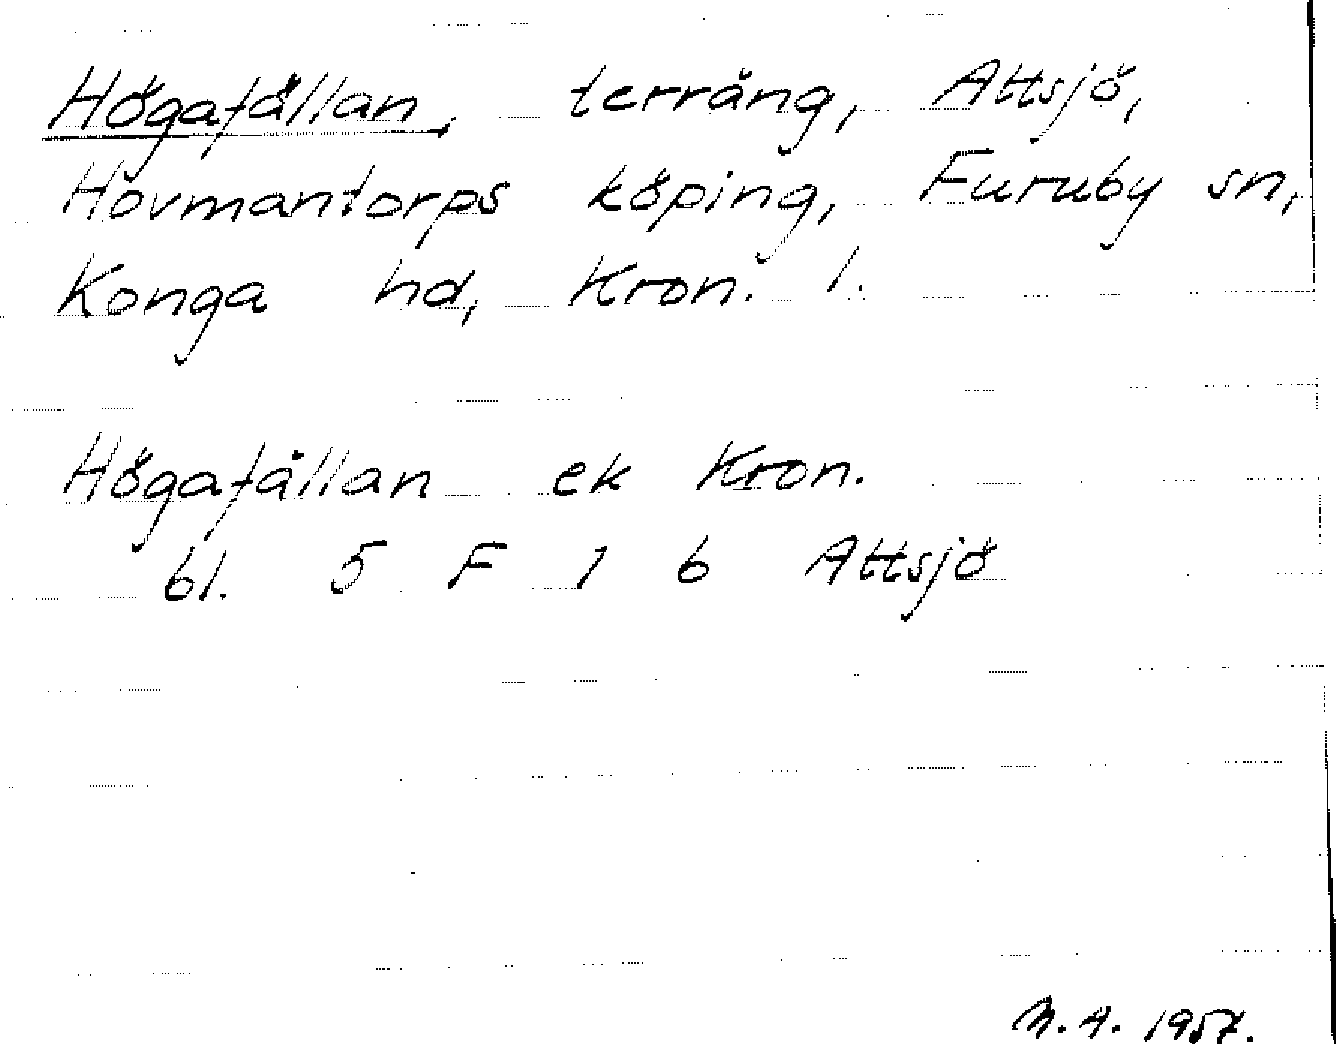 Högafällan, terräng, Attsjö,
Hovmantorps köping, Furuby sn,
Konga hd, Kron. l.
Högafällan ek Kron.
bl. 5 F 1 b Attsjö
M.A. 1957.